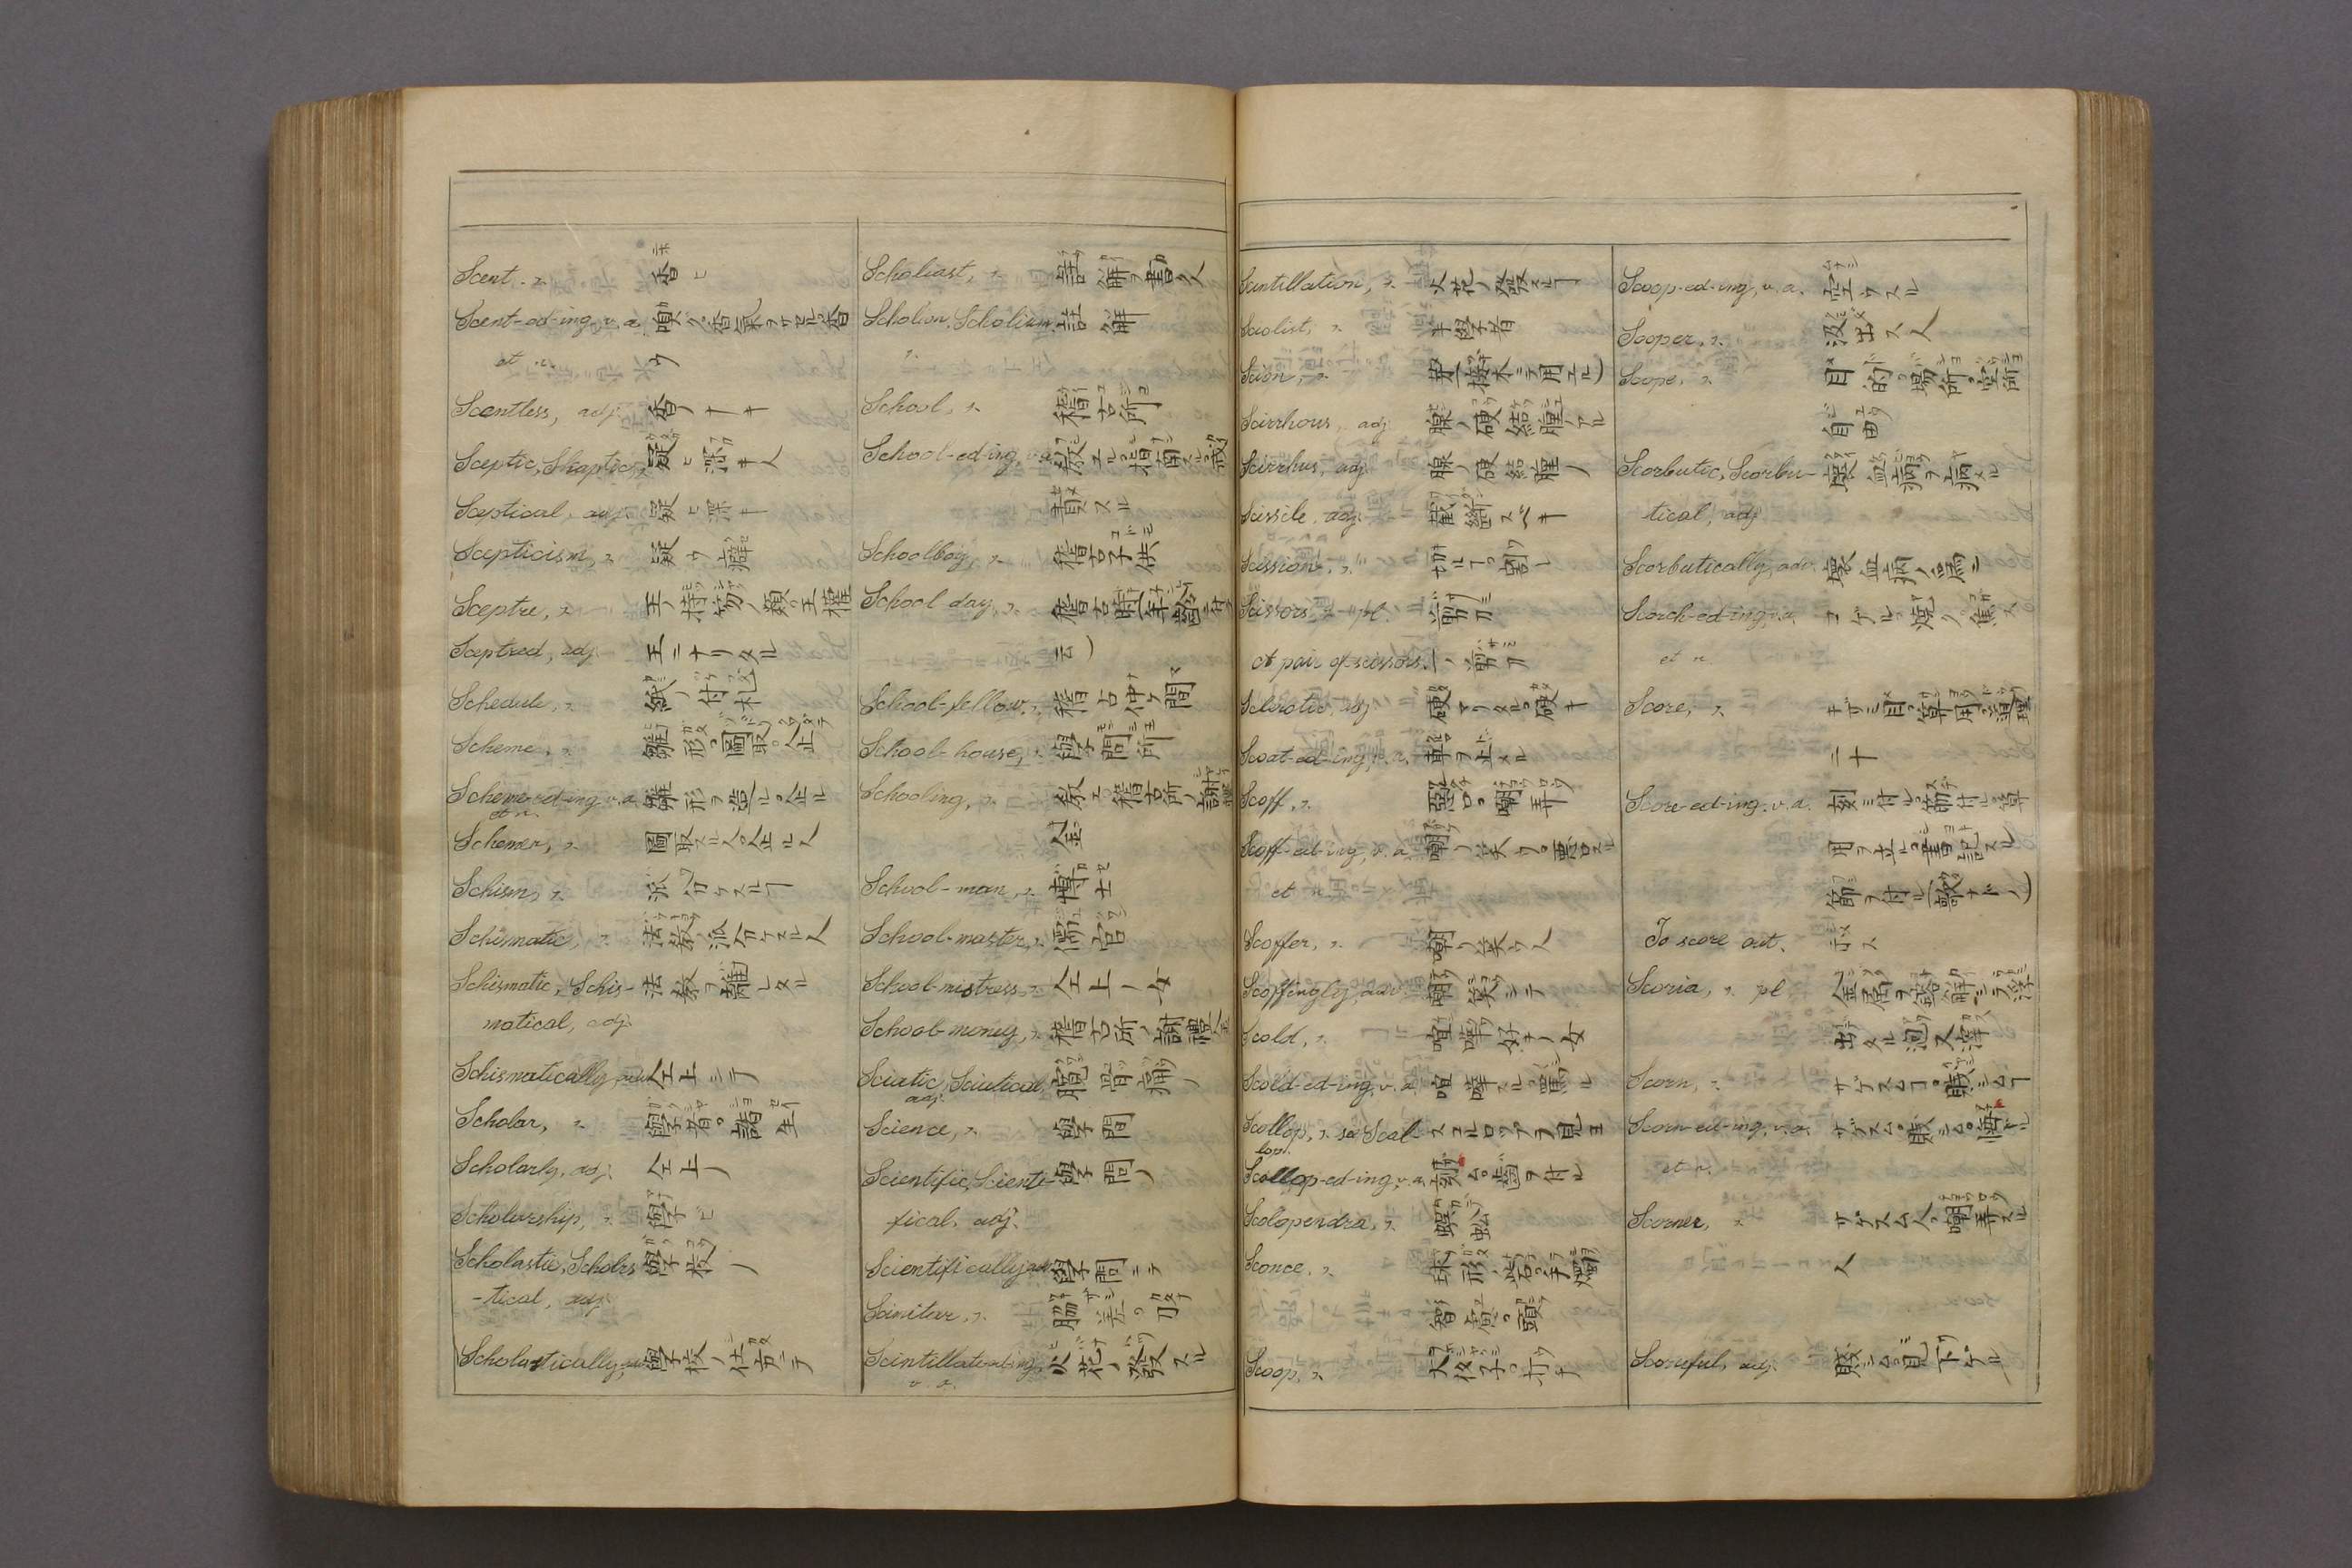 Scent, n. 香ヒ
Scent-ed-ing, v.a. 嗅グ。香氣ヲツケル。香
et n. ウ
Scentless, adj. 香ノナキ
Sceptic, Skeptic, n. 疑ヒ深キ人
Sceptical, adj. 疑ヒ深キ
Scepticism, n. 疑ウ癖
Sceptre, n. 王ノ持笏ノ類。王權
Sceptred, adj. 王ニナリタル
Schedule, n. 紙ノ付札
Scheme, n. 雛形。圖取。企
Scheme-ed-ing, v.a. 雛形ヲ造ル。企ル
et n.
Schemer, n. 圖取スル人。企ル人
Schism, n. 派分ケスルヿ
Schismatic, n. 法教ノ派分ケスル人
Schismatic, Schis- 法教ヲ離レタル
matical, adj.
Schismatically, adv. 仝上シテ
Scholar, n. 學者。諸生
Scholarly, adj. 仝上ノ
Scholarship, n. 學ビ
Scholastic, Scholas 學校ノ
-tical, adj.
Scholastically, adv. 學校ノ仕方ニテ
Scholiast, n. 註解ヲ書ク人
Scholion, Scholium, 註解
n.
School, n. 稽古所
School-ed-ing, v.a. 教エル。指南スル。戒
責スル
Schoolboy, n. 稽古子供
School day, n. 稽古時
云)
School-fellow, n. 稽古仲ケ間
School-house, n. 學問所
Schooling, n. 教エ。稽古所ノ謝禮
金
School-man, n. 博士
School-master, n. 儒官
School-mistress, n. 仝上ノ女
School-money, n. 稽古所ノ謝禮金
Sciatic, Sciatical, 腿骨痛ノ
adj.
Science, n. 學問
Scientific, Scienti- 學問ノ
fical, adj.
Scientifically, adv. 學問ニテ
Scimitar, n. 脇差。刀
Scintillate-ed-ing, 火花ノ發スル
v.n.
Scintillation, n. 火花ノ發スルヿ
Sciolist, n. 半學者
Scion, n. 芽(接木ニ用エル)
Scirrhous, adj. 腺ノ硬結腫ノアル
Scirrhus, adj. 腺ノ硬結腫ノ
Scissile, adj. 截斷スベキ
Scission, n. 切ルヿ。割レ
Scissors, n. pl. 剪刀
A pair of scissors. 一ノ剪刀
Sclerotic, adj. 硬マリタル。硬キ
Scoat-ed-ing, v.a. 車ヲ止メル
Scoff, n. 惡口。嘲弄
Scoff-ed-ing, v.a. 嘲リ笑ウ。悪口スル
et n.
Scoffer, n. 嘲リ笑ウ人
Scoffingly, adv. 嘲笑シテ
Scold, n. 喧嘩好キノ女
Scold-ed-ing, v.a. 喧嘩スル。罵ル
Scollop, n. se Scal スコルロップヲ見ヨ
lop.
Scollop-ed-ing, v.a. 刻ム。齒ヲ付ル
Scolopendra, n. 蜈蚣
Sconce, n. 球形ノ砦。手燭
智慮。頭
Scoop, n. 大杓子。打ケ
Scoop-ed-ing, v.a. 空ウスル
Scooper, n. 汲出ス人
Scope, n. 目的。場所。空所
自由
Scorbutic, Scorbu- 壊血病ヲ病メル
tical, adj.
Scorbutically, adv. 壊血病ノ爲ニ
Scorch-ed-ing, v.a. コゲル。燒ク。焦ス
et n.
Score, n. キザミ目。算用。道理
二十
Score-ed-ing, v.a. 刻ミ付ル。筋付ル。算
用ヲ立ル。書記スル
節ヲ付ル(歌ナドノ)
To score out. 示ス
Scoria, n. pl 金属ヲ鎔解シテ浮
出タル泡又滓
Scorn, n. サゲスムヿ。賎シムヿ
Scorn-ed-ing, v.a. サゲスム。賎シム。侮ル
et n.
Scorner, n. サゲスム人。嘲弄スル
人
Scornful, adj. 賎シム。見下ゲル